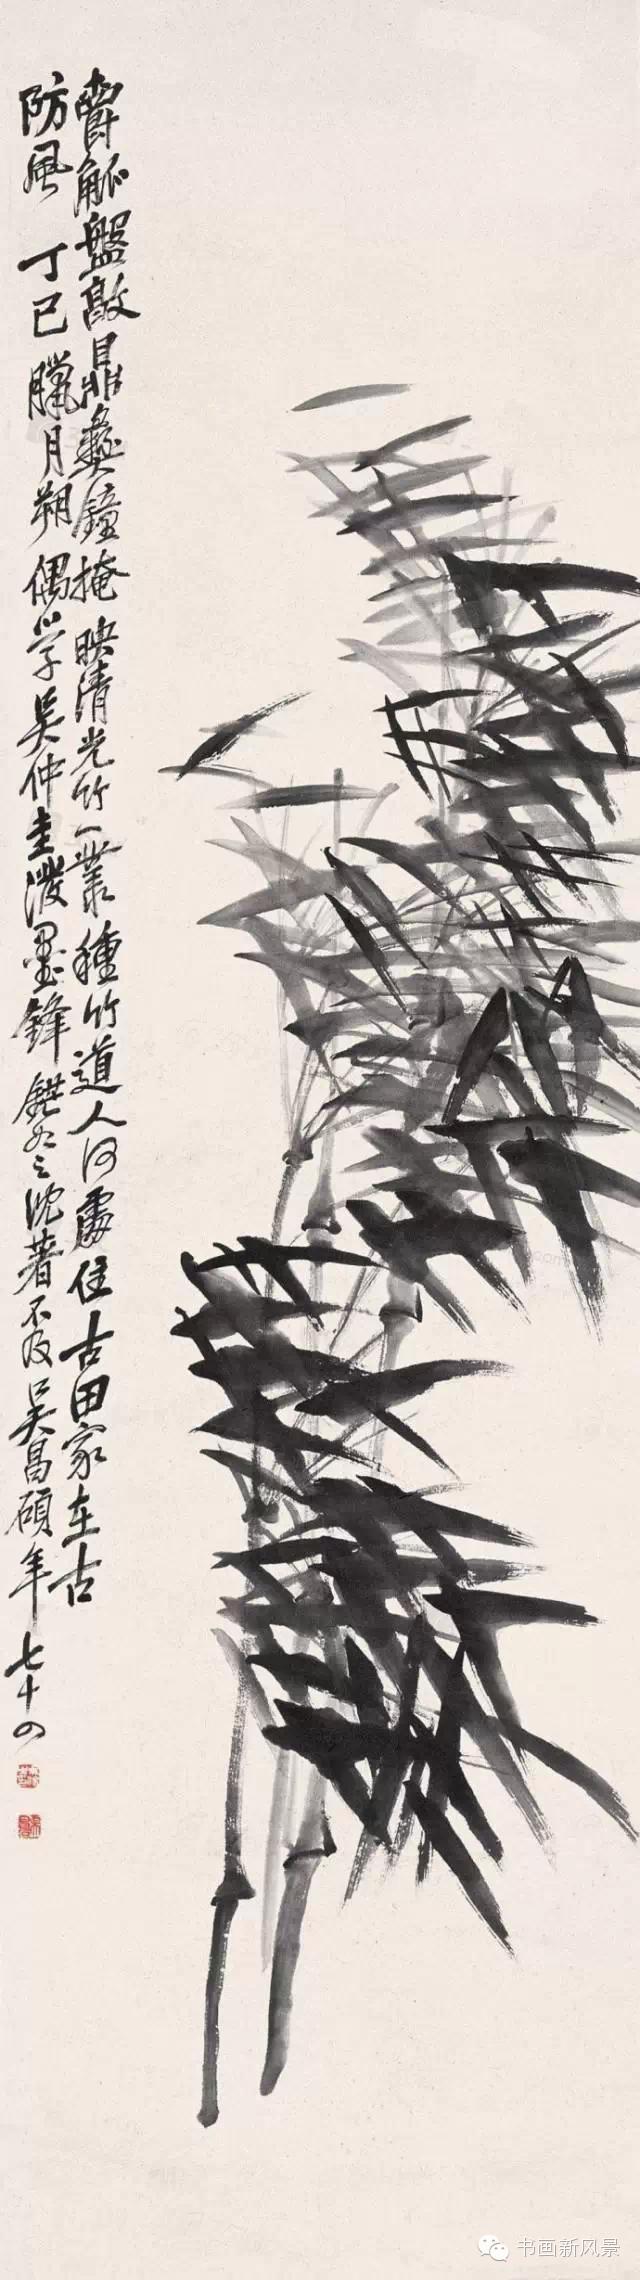 爵觚盤敦鼎彝鐘掩映清光竹一叢種竹道人何處住古田家在古
防風丁巳臘月朔偶学吴仲圭潑墨鋒錯為之沈著不及吴昌碩年七十四
书画新风景